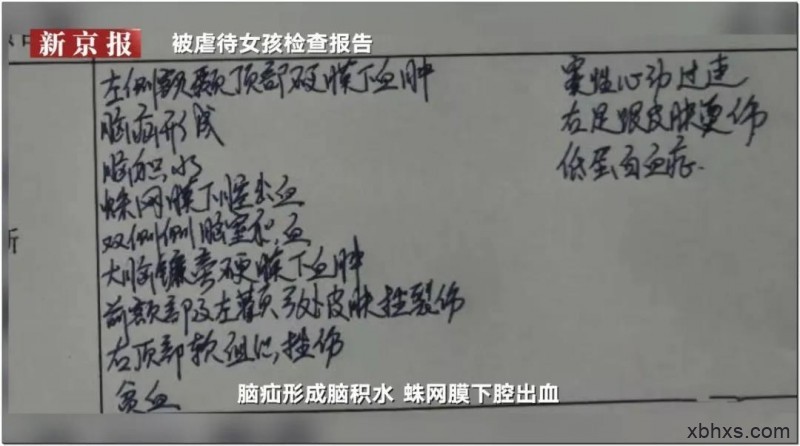 新京报
被虐待女孩检查报告
左侧额颞顶部硬膜下血肿
脑疝形成
脑积水
蛛网膜下腔出血
双侧侧脑室积血
大脑镰旁硬膜下血肿
前额部及左颧弓处皮肤挫裂伤
右顶部软组织挫伤
贫血
窦性心动过速
右足跟皮肤烫伤
低蛋白血症
断
脑疝形成脑积水 蛛网膜下腔出血
xbhxs.com